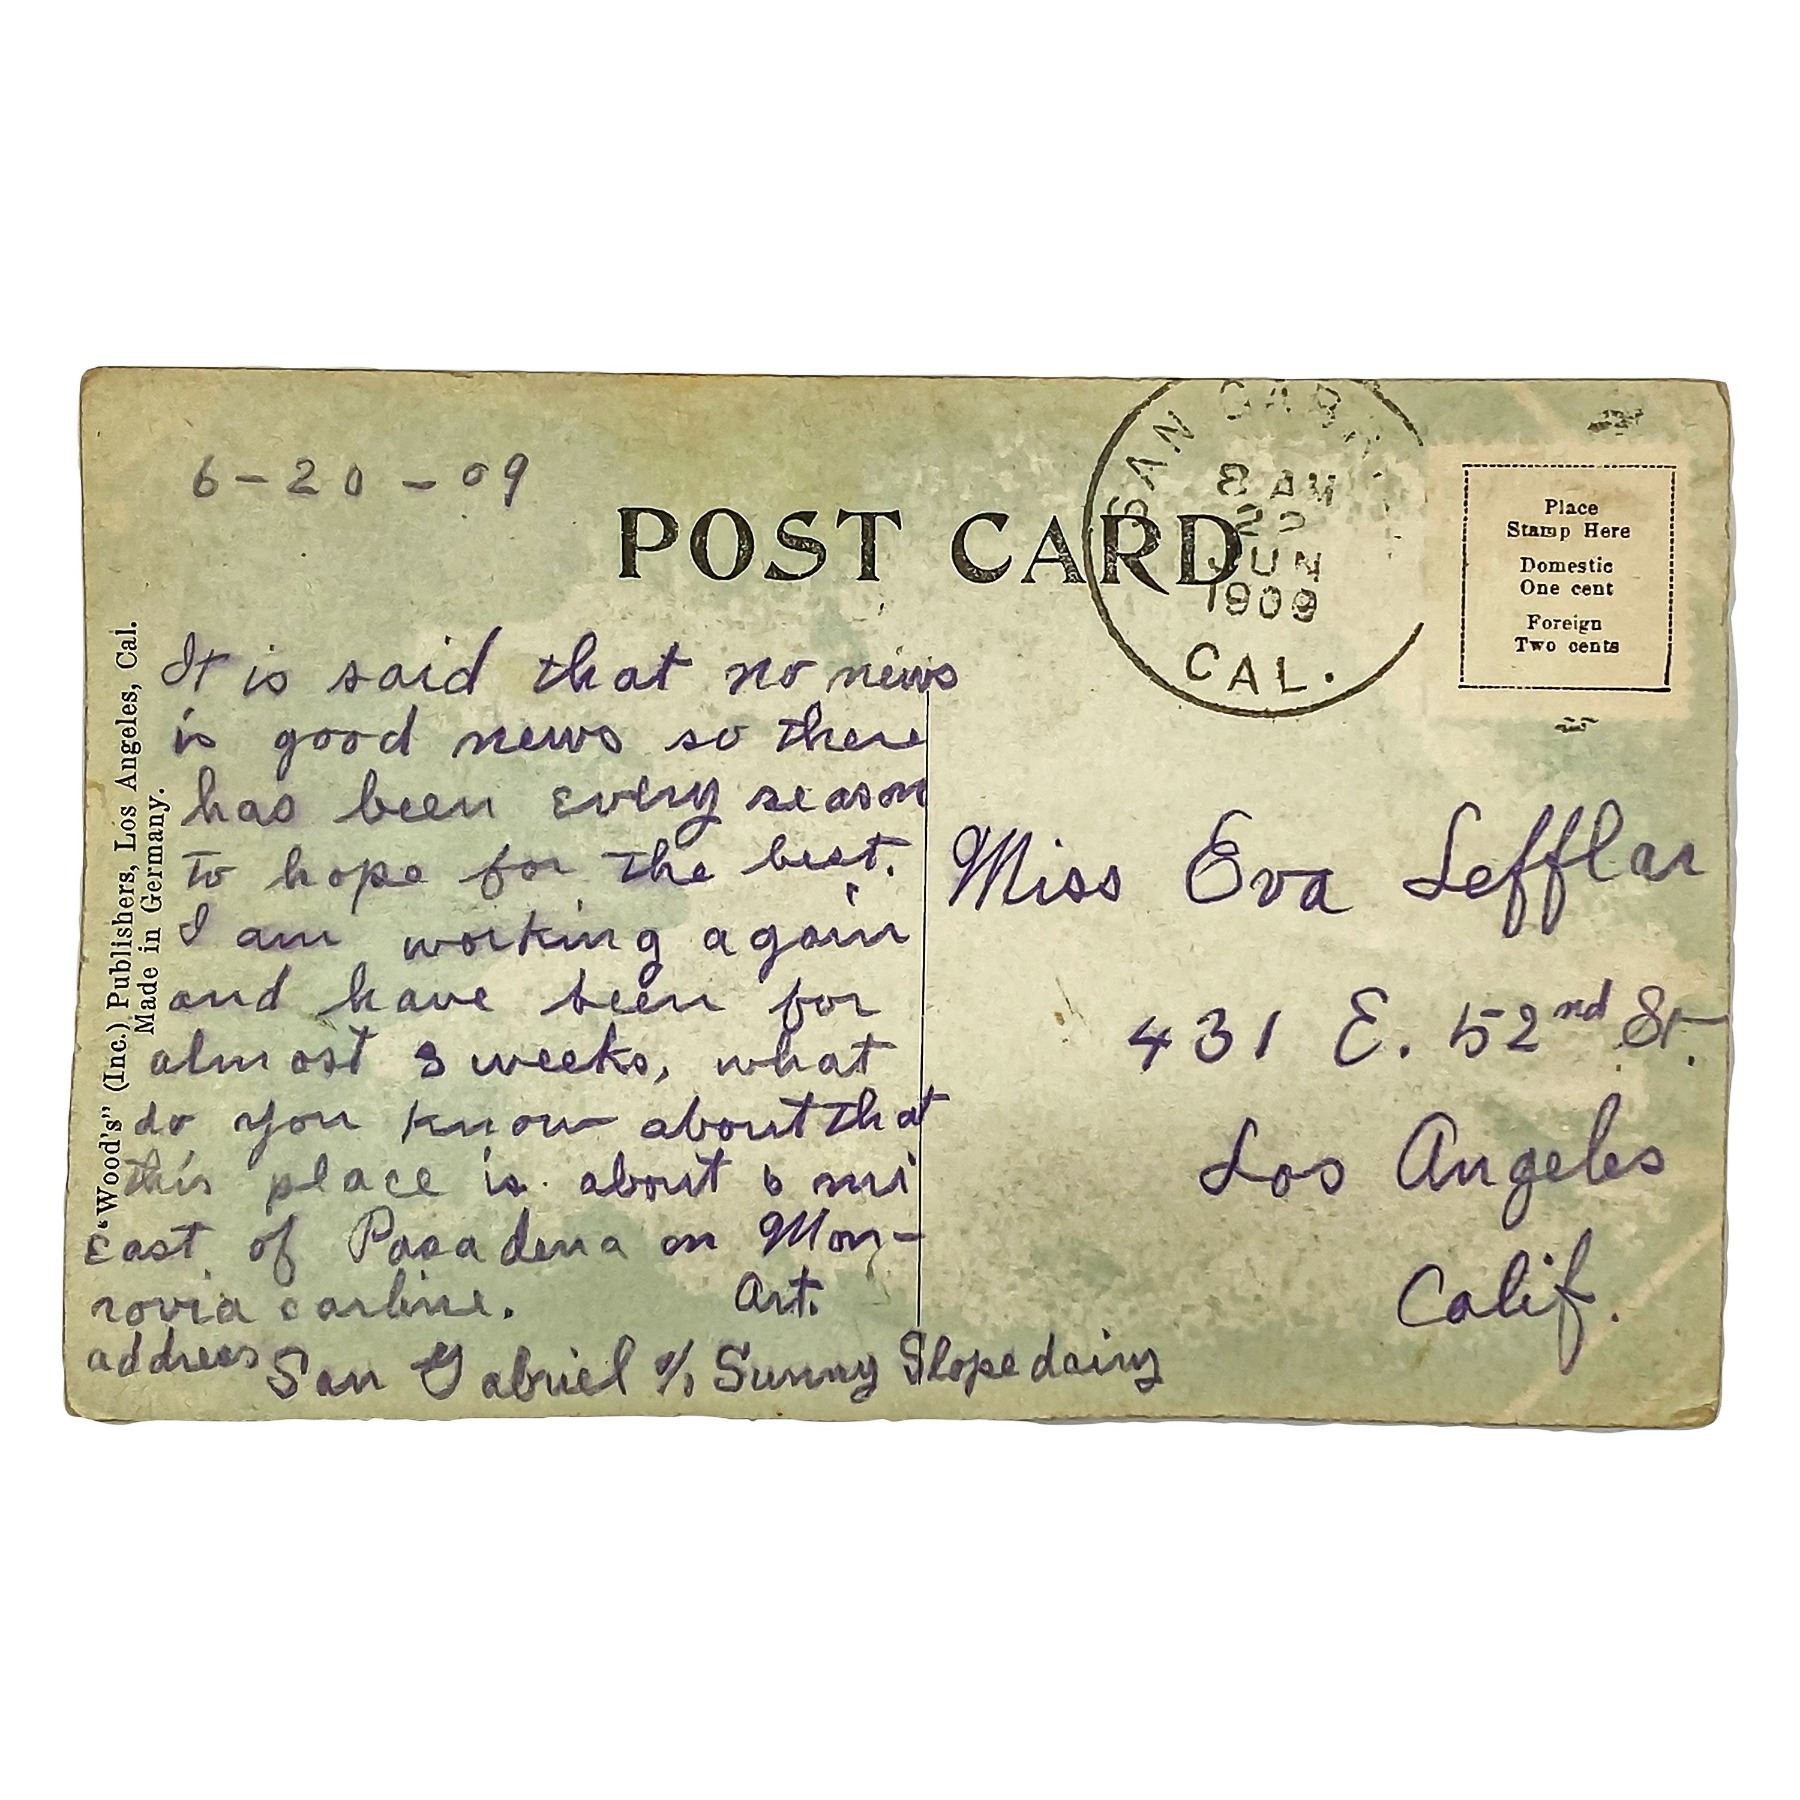 6-20-09
POST CARD
SAN GAB
8 AM
JUN
1909
CAL.
Place
Stamp Here
Domestic
One cent
Foreign
Two cents
"Wood's" (Inc.) Publishers, Los Angeles, Cal.
Made in Germany.
It is said that no news
is good news so there
has been every reason
to hope for the best.
I am working again
and have been for
almost 3 weeks, what
do you know about that
this place is about 6 mi
East of Pasadena on Mon-
rovia carline.
Art.
address San Gabriel c/o Sunny Slope dairy
Miss Eva Lefflar
431 E. 52nd St.
Los Angeles
Calif.